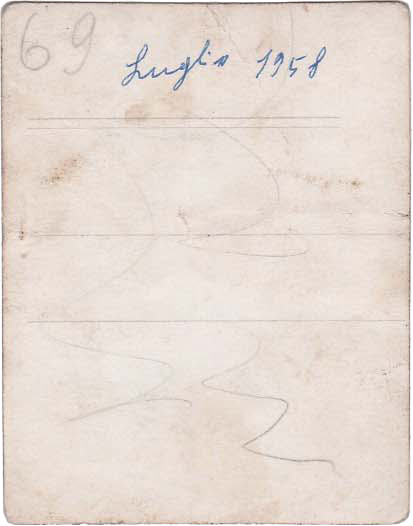 69
Luglio 1958